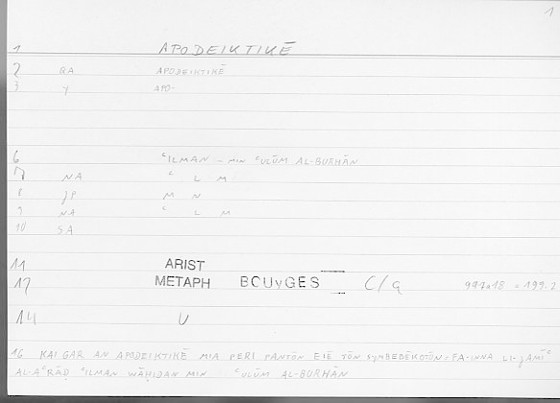 1
1 APODEIKTIKĒ
2 QA APODEIKTIKĒ
3 Y APO-
6 ʿILMAN – MIN ʿULŪM AL-BURHĀN
7 NA ʿ L M
8 JP M N
9 NA ʿ L M
10 SA
11 ARIST
12 METAPH BOUYGES C/G 997a18 = 199.2
14 U
16 KAI GAR AN APODEIKTIKĒ MIA PERI PANTŌN EIĒ TŌN SYMBEBĒKOTŌN = FA-INNA LI-JAMĪʿ
AL-AʿRĀḌ ʿILMAN WĀḤIDAN MIN ʿULŪM AL-BURHĀN